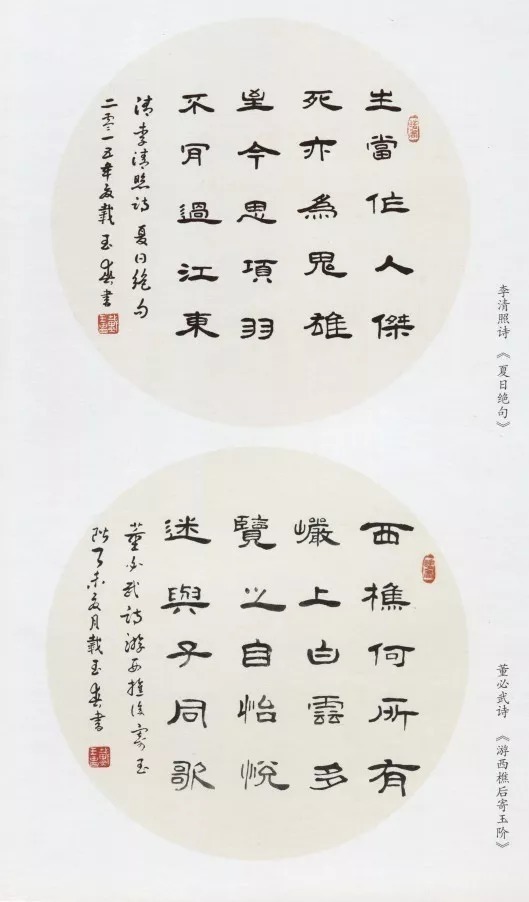 生當作人傑
死亦為鬼雄
至今思項羽
不肯過江東
清李清照詩夏日絕句
二零一五年夏戴玉書
李清照诗《夏日绝句》
西樵何所有
巖上白雲多
覽之自怡悅
迷與子同歌
董必武詩游西樵後寄玉
階乙未夏月戴玉書
董必武诗《游西樵后寄玉阶》